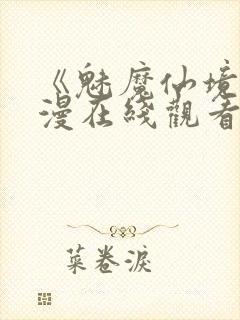 《魅魔仙境
漫在綫觀看
菜卷淚